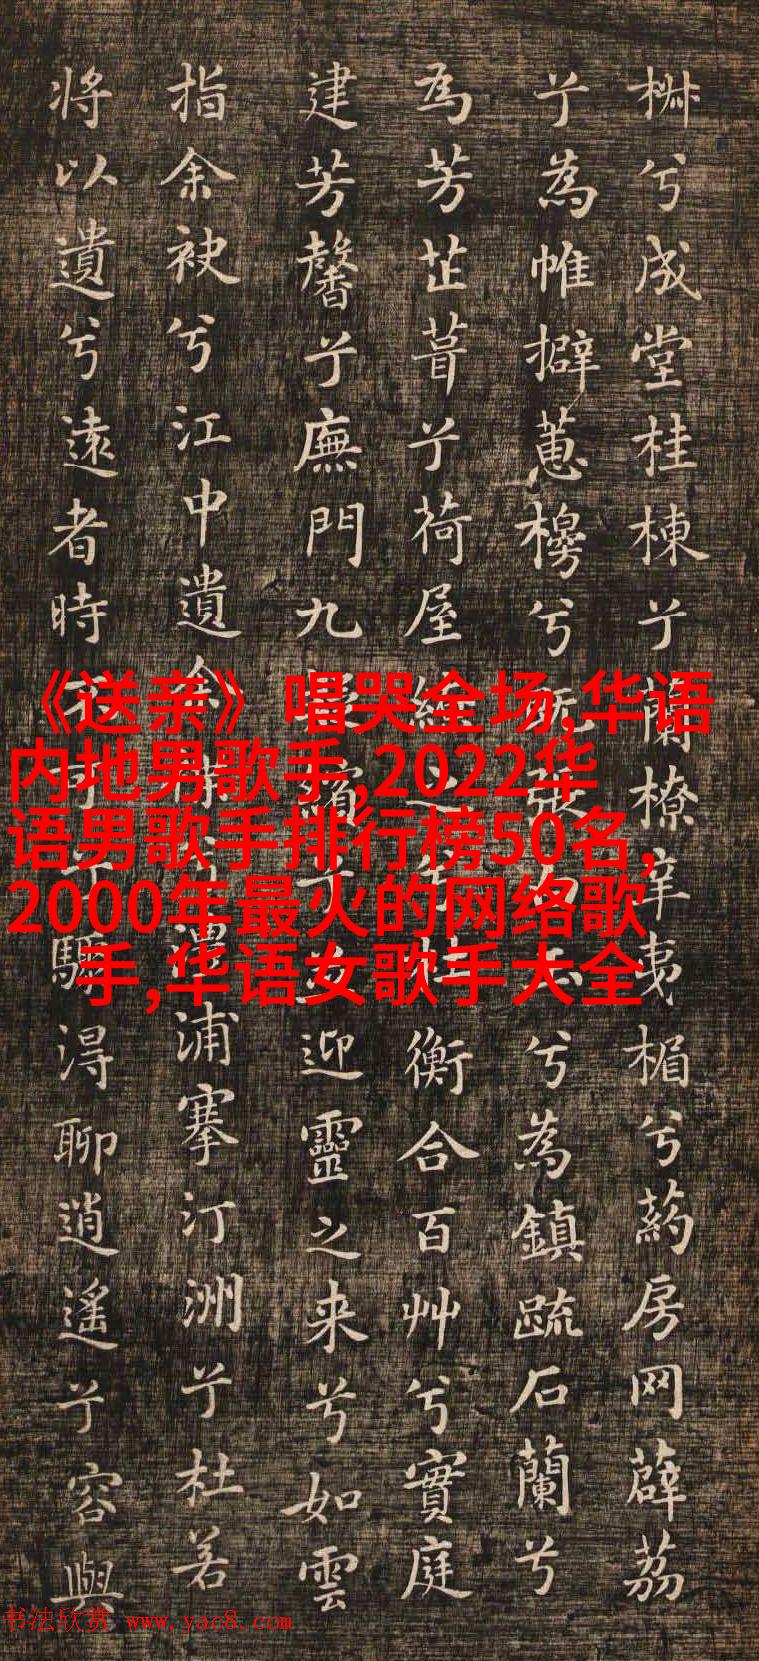 椒兮成堂桂棟兮蘭橑辛夷楣兮葯房网薜荔
兮為帷擗蕙櫋兮既張白兮為鎮疏石蘭兮
為芳芷葺兮荷屋繚之兮杜衡合百艸兮實庭
建芳馨兮廡門九繽兮並迎靈之来兮如雲
指余袂兮江中遺余兮澧浦搴汀洲兮杜若
將以遺兮遠者時不可兮驟得聊逍遙兮容與
《送亲》唱哭全场,华语
内地男歌手,2022华
语男歌手排行榜50名,
2000年最火的网络歌
手,华语女歌手大全
书法欣赏 www.yac8.com